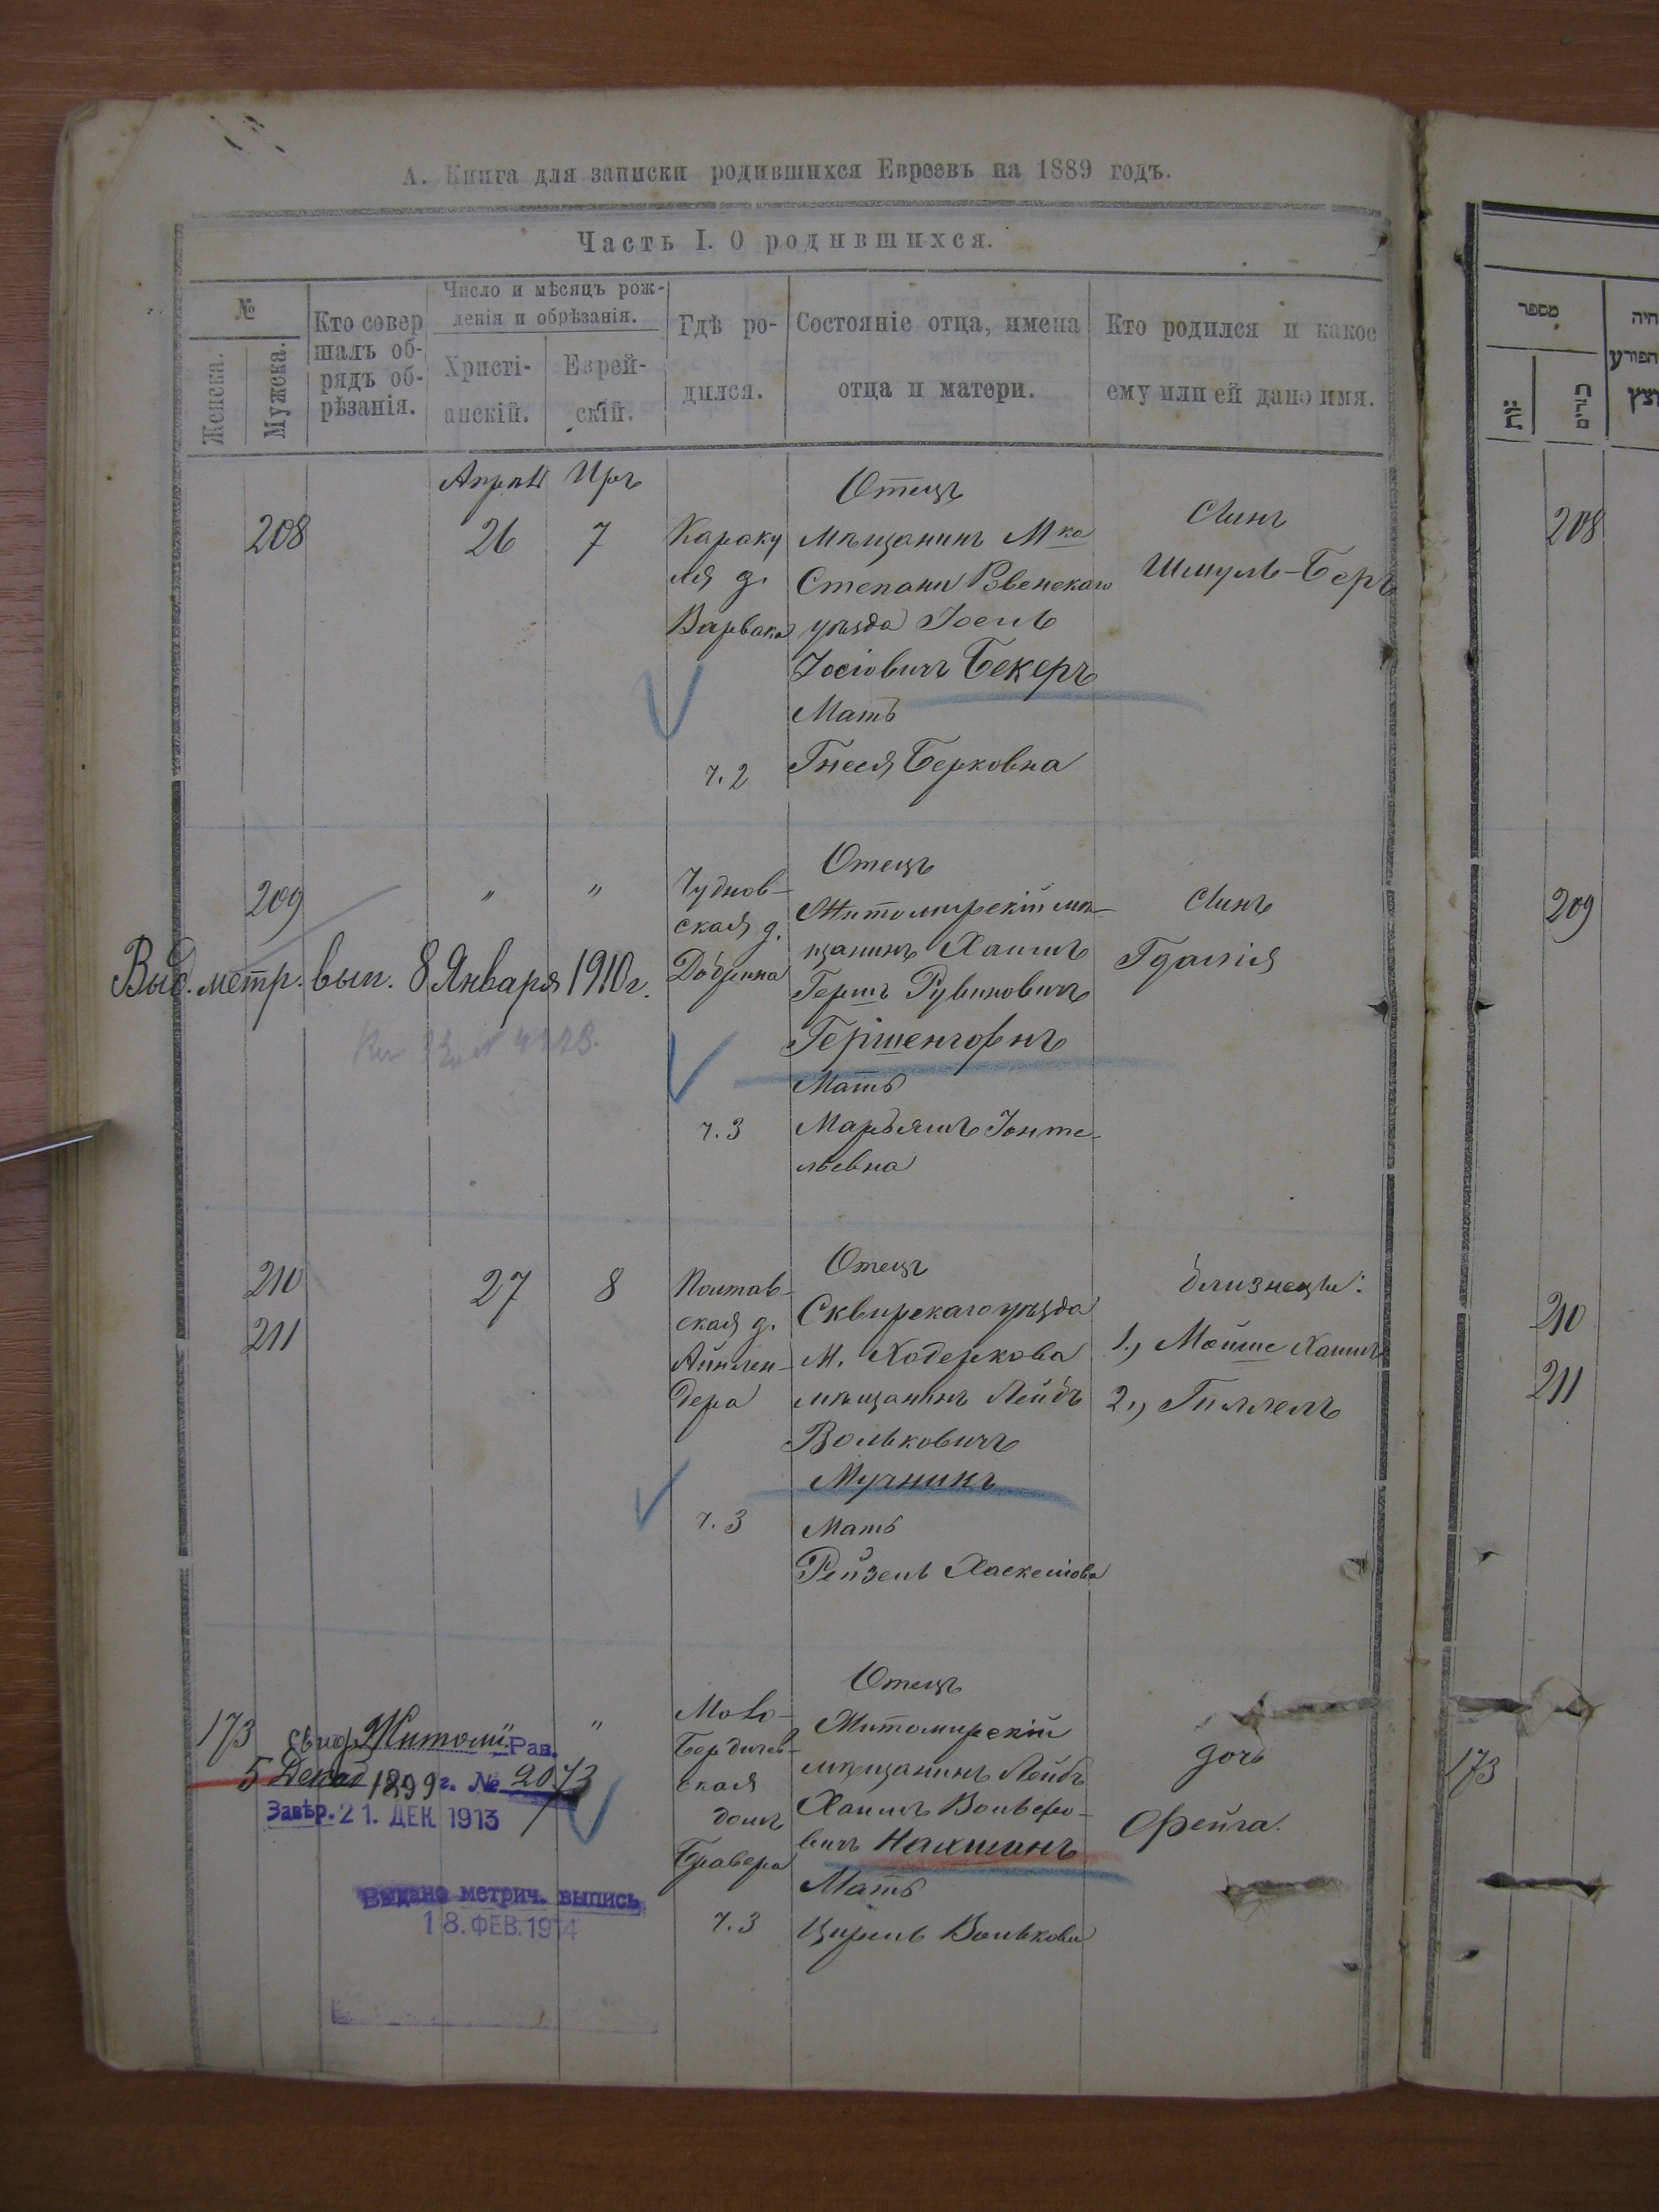 А. Книга для записки родившихся Евреевъ на 1889 годъ.
Часть I. О родившихся.
№
Женска.
Мужска.
Кто совер
шалъ об-
рядъ об-
рѣзанія.
Число и мѣсяцъ рож-
денія и обрѣзанія.
Христі-
анскій.
Еврей-
скій.
Гдѣ ро-
дился.
Состояніе отца, имена
отца и матери.
Кто родился и какое
ему или ей дано имя.
Апрѣл Иръ
208
26
7
Караку
ля д.
Варвака
ч. 2
Отецъ
мѣщанинъ Мка
Степани Ровенскаго
уѣзда Іосель
Іосіовичъ Бекеръ
Мать
Гнеся Берковна
Сынъ
Шмуль-Беръ
209
"
"
Чуднов-
ская д.
Добрина
ч. 3
Отецъ
Житомирскій мѣ-
щанинъ Хаимъ
Гершъ Рувиновичъ
Гершенгорнъ
Мать
Марьямъ Іонте-
льевна
Сынъ
Гдалія
Выд. метр. вып. 8 Января 1910 г.
210
211
27
8
Полтав-
ская д.
дера
ч. 3
Отецъ
Сквирскаго уѣзда
М. Ходеркова
мѣщанинъ Лейбъ
Вольковичъ
Мучникъ
Мать
Рейзель Хаскелова
близнецы:
1., Мойше Хаимъ
2., Гиллель
173
Житоми. Рав.
5 Декаб 1899 г. № 2073
Завѣр. 21. ДЕК 1913
Выдана метрич. выпись
18. ФЕВ. 1914
"
Мало-
Бердичев-
ская
домъ
Бравера
ч. 3
Отецъ
Житомирскій
мѣщанинъ Лейбъ
Хаимъ Вольфо-
вичъ Нахманъ
Мать
Цирель Волькова
дочь
Фейга.
מספר
208
209
210
211
173